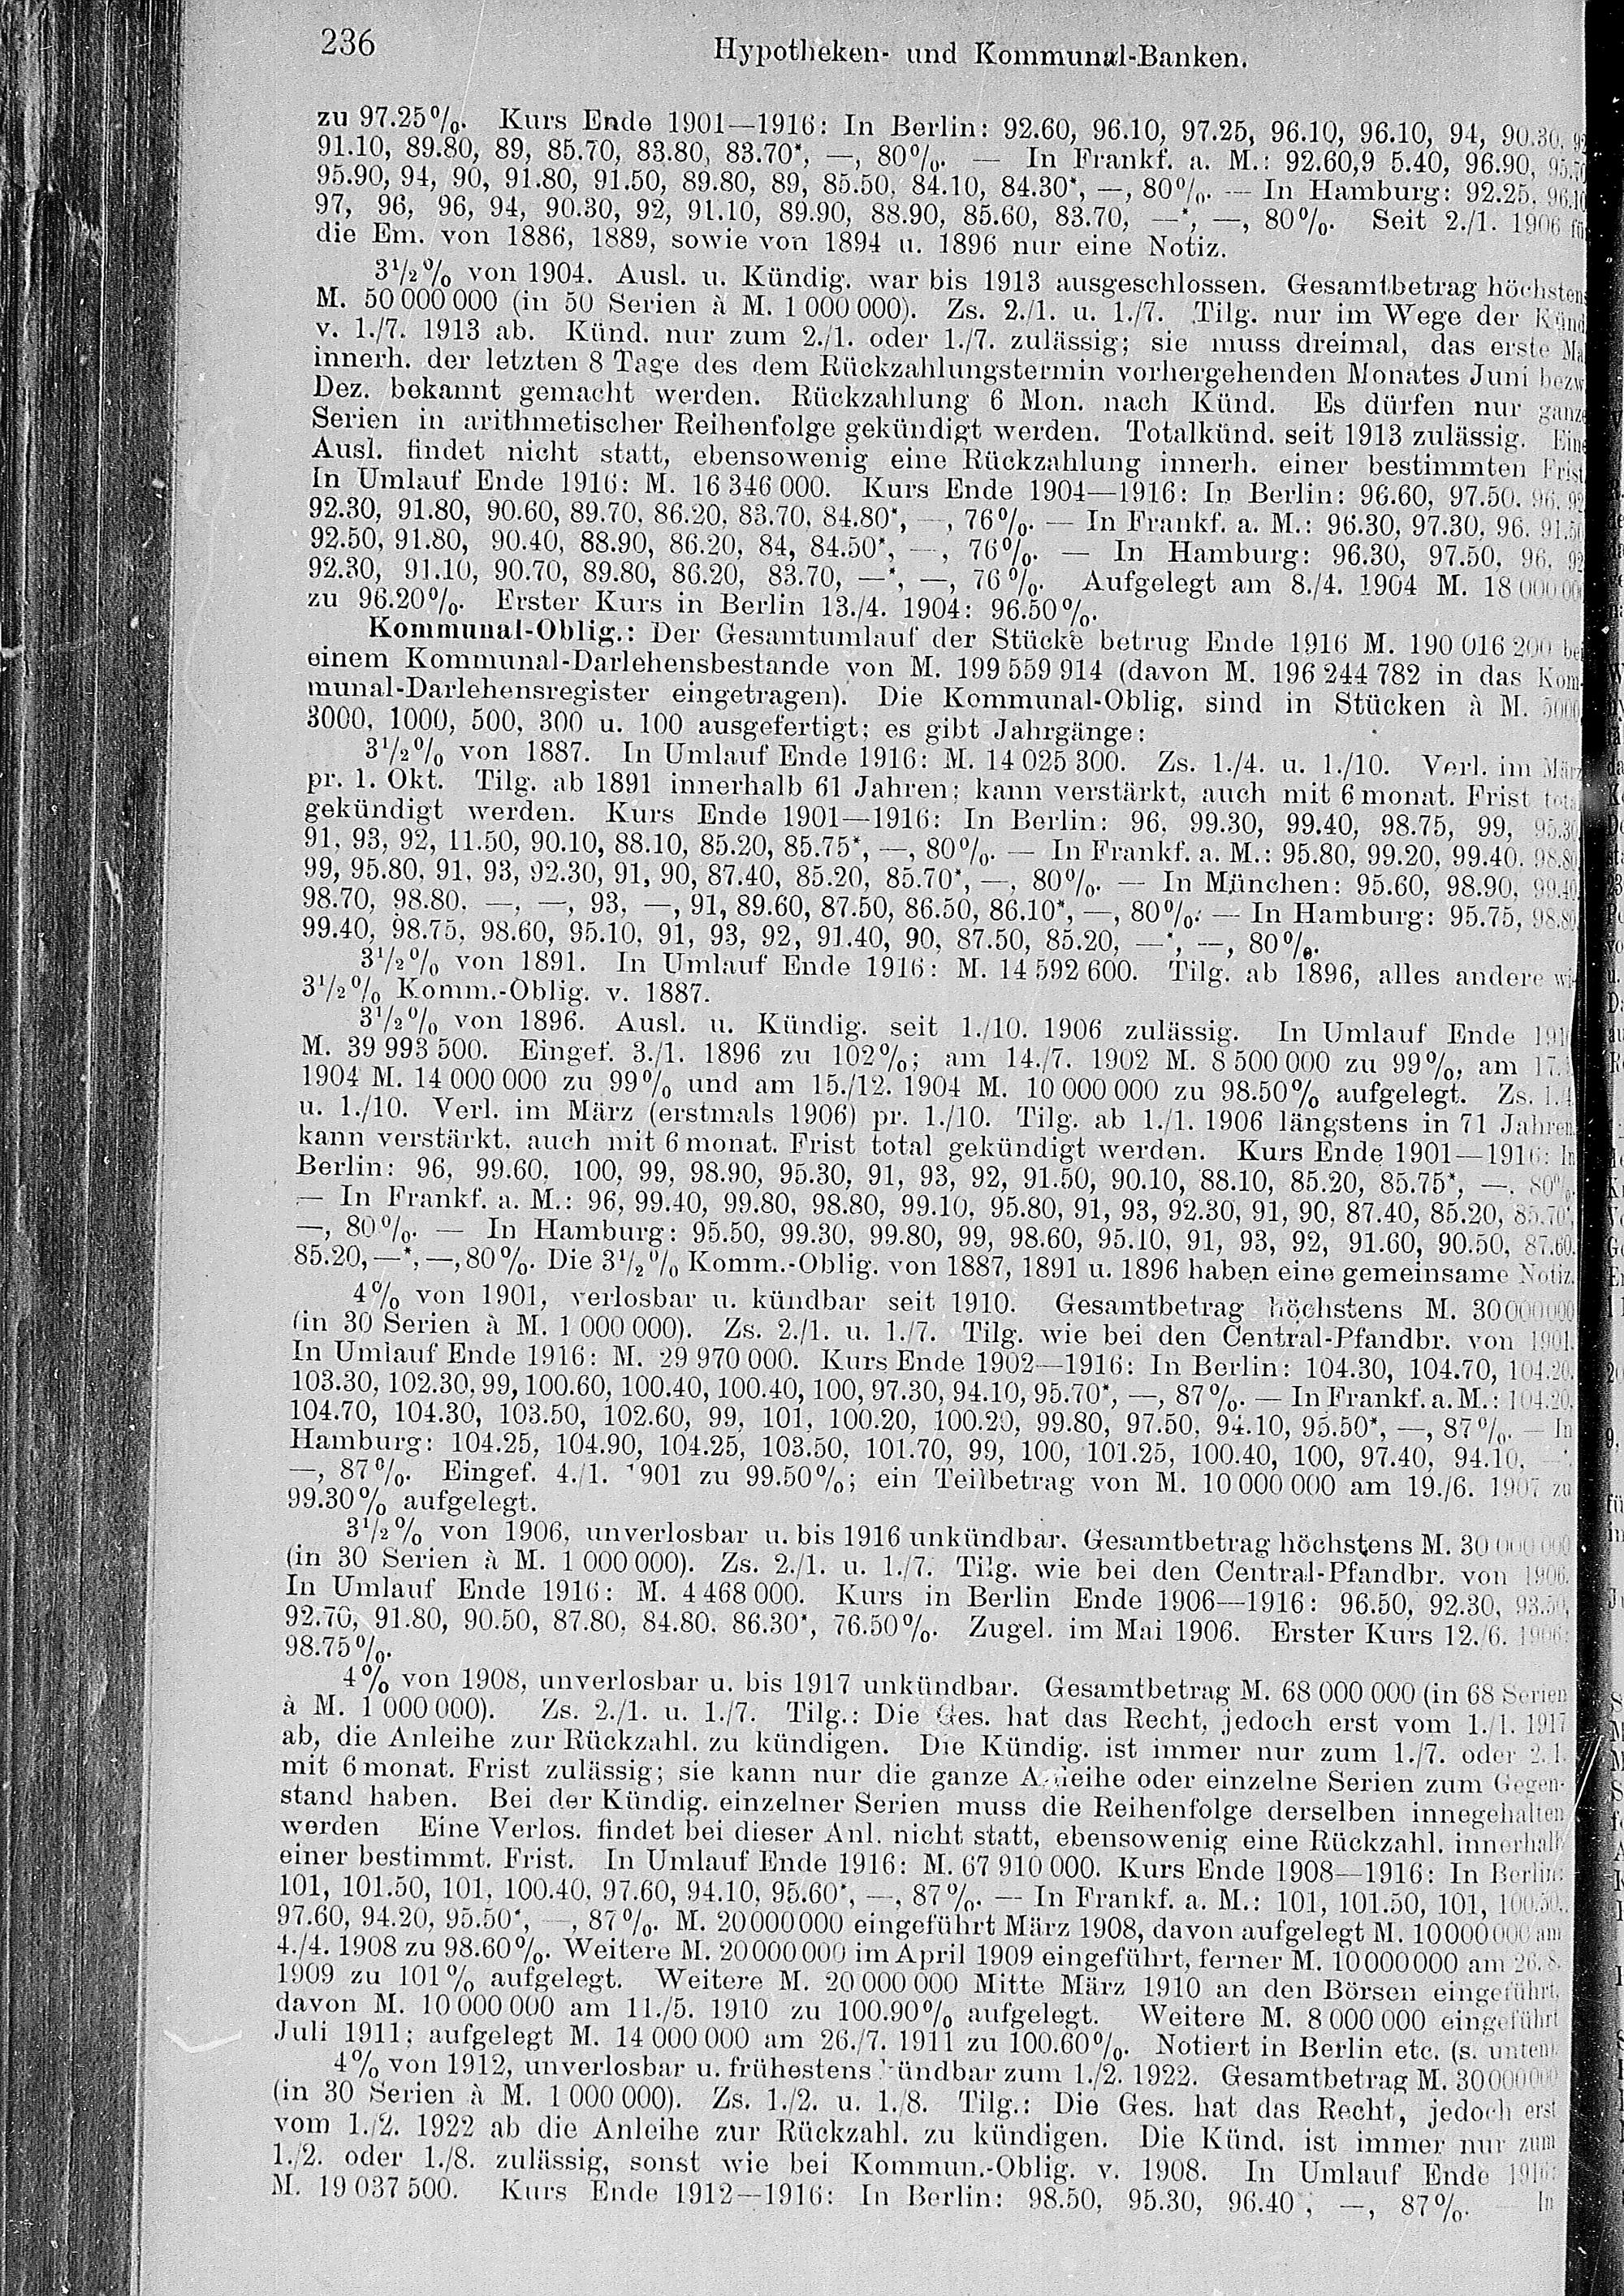 236
Hypotheken- und Kommunal-Banken.
zu 97.25%. Kurs Ende 1901—1916: In Berlin: 92.60, 96.10, 97.25, 96.10, 96.10, 94, 90.30, 92
91.10, 89.80, 89, 85.70, 83.80, 83.70*, —, 80%. — In Frankf. a. M.: 92.60,9 5.40, 96.90, 95.70
95.90, 94, 90, 91.80, 91.50, 89.80, 89, 85.50, 84.10, 84.30*, —, 80%. — In Hamburg: 92.25, 96.10
97, 96, 96, 94, 90.30, 92, 91.10, 89.90, 88.90, 85.60, 83.70, —*, —, 80%. Seit 2./1. 1906 für
die Em. von 1886, 1889, sowie von 1894 u. 1896 nur eine Notiz.
3½% von 1904. Ausl. u. Kündig. war bis 1913 ausgeschlossen. Gesamtbetrag höchstens
M. 50 000 000 (in 50 Serien à M. 1 000 000). Zs. 2./1. u. 1./7. Tilg. nur im Wege der Künd
v. 1./7. 1913 ab. Künd. nur zum 2./1. oder 1./7. zulässig; sie muss dreimal, das erste Mal
innerh. der letzten 8 Tage des dem Rückzahlungstermin vorhergehenden Monates Juni bezw
Dez. bekannt gemacht werden. Rückzahlung 6 Mon. nach Künd. Es dürfen nur ganze
Serien in arithmetischer Reihenfolge gekündigt werden. Totalkünd. seit 1913 zulässig. Eine
Ausl. findet nicht statt, ebensowenig eine Rückzahlung innerh. einer bestimmten Frist
In Umlauf Ende 1916: M. 16 346 000. Kurs Ende 1904—1916: In Berlin: 96.60, 97.50, 96, 92
92.30, 91.80, 90.60, 89.70, 86.20, 83.70, 84.80*, —, 76%. — In Frankf. a. M.: 96.30, 97.30, 96, 91.50
92.50, 91.80, 90.40, 88.90, 86.20, 84, 84.50*, —, 76%. — In Hamburg: 96.30, 97.50, 96, 92
92.30, 91.10, 90.70, 89.80, 86.20, 83.70, —*, —, 76%. Aufgelegt am 8./4. 1904 M. 18 000 000
zu 96.20%. Erster Kurs in Berlin 13./4. 1904: 96.50%.
Kommunal-Oblig.: Der Gesamtumlauf der Stücke betrug Ende 1916 M. 190 016 200 bei
einem Kommunal-Darlehensbestande von M. 199 559 914 (davon M. 196 244 782 in das Kom-
munal-Darlehensregister eingetragen). Die Kommunal-Oblig. sind in Stücken à M. 5000
3000, 1000, 500, 300 u. 100 ausgefertigt; es gibt Jahrgänge:
3½% von 1887. In Umlauf Ende 1916: M. 14 025 300. Zs. 1./4. u. 1./10. Verl. im März
pr. 1. Okt. Tilg. ab 1891 innerhalb 61 Jahren; kann verstärkt, auch mit 6 monat. Frist total
gekündigt werden. Kurs Ende 1901—1916: In Berlin: 96, 99.30, 99.40, 98.75, 99, 95.30
91, 93, 92, 11.50, 90.10, 88.10, 85.20, 85.75*, —, 80%. — In Frankf. a. M.: 95.80, 99.20, 99.40, 98.80
99, 95.80, 91, 93, 92.30, 91, 90, 87.40, 85.20, 85.70*, —, 80%. — In München: 95.60, 98.90, 99.40
98.70, 98.80, —, —, 93, —, 91, 89.60, 87.50, 86.50, 86.10*, —, 80%. — In Hamburg: 95.75, 98.80
99.40, 98.75, 98.60, 95.10, 91, 93, 92, 91.40, 90, 87.50, 85.20, —*, —, 80%.
3½% von 1891. In Umlauf Ende 1916: M. 14 592 600. Tilg. ab 1896, alles andere wie
3½% Komm.-Oblig. v. 1887.
3½% von 1896. Ausl. u. Kündig. seit 1./10. 1906 zulässig. In Umlauf Ende 1916
M. 39 993 500. Eingef. 3./1. 1896 zu 102%; am 14./7. 1902 M. 8 500 000 zu 99%, am 17.
1904 M. 14 000 000 zu 99% und am 15./12. 1904 M. 10 000 000 zu 98.50% aufgelegt. Zs. 1./4
u. 1./10. Verl. im März (erstmals 1906) pr. 1./10. Tilg. ab 1./1. 1906 längstens in 71 Jahren
kann verstärkt, auch mit 6 monat. Frist total gekündigt werden. Kurs Ende 1901—1916: In
Berlin: 96, 99.60, 100, 99, 98.90, 95.30, 91, 93, 92, 91.50, 90.10, 88.10, 85.20, 85.75*, —, 80%.
— In Frankf. a. M.: 96, 99.40, 99.80, 98.80, 99.10, 95.80, 91, 93, 92.30, 91, 90, 87.40, 85.20, 85.70*,
—, 80%. — In Hamburg: 95.50, 99.30, 99.80, 99, 98.60, 95.10, 91, 93, 92, 91.60, 90.50, 87.60,
85.20, —*, —, 80%. Die 3½% Komm.-Oblig. von 1887, 1891 u. 1896 haben eine gemeinsame Notiz.
4% von 1901, verlosbar u. kündbar seit 1910. Gesamtbetrag höchstens M. 30 000 000
(in 30 Serien à M. 1 000 000). Zs. 2./1. u. 1./7. Tilg. wie bei den Central-Pfandbr. von 1901.
In Umlauf Ende 1916: M. 29 970 000. Kurs Ende 1902—1916: In Berlin: 104.30, 104.70, 104.20,
103.30, 102.30, 99, 100.60, 100.40, 100.40, 100, 97.30, 94.10, 95.70*, —, 87%. — In Frankf. a. M.: 104.20,
104.70, 104.30, 103.50, 102.60, 99, 101, 100.20, 100.20, 99.80, 97.50, 94.10, 95.50*, —, 87%. — In
Hamburg: 104.25, 104.90, 104.25, 103.50, 101.70, 99, 100, 101.25, 100.40, 100, 97.40, 94.10, —*,
—, 87%. Eingef. 4./1. 1901 zu 99.50%; ein Teilbetrag von M. 10 000 000 am 19./6. 1907 zu
99.30% aufgelegt.
3½% von 1906, unverlosbar u. bis 1916 unkündbar. Gesamtbetrag höchstens M. 30 000 000
(in 30 Serien à M. 1 000 000). Zs. 2./1. u. 1./7. Tilg. wie bei den Central-Pfandbr. von 1906.
In Umlauf Ende 1916: M. 4 468 000. Kurs in Berlin Ende 1906—1916: 96.50, 92.30, 93.50,
92.70, 91.80, 90.50, 87.80, 84.80, 86.30*, 76.50%. Zugel. im Mai 1906. Erster Kurs 12./6. 1906:
98.75%.
4% von 1908, unverlosbar u. bis 1917 unkündbar. Gesamtbetrag M. 68 000 000 (in 68 Serien
à M. 1 000 000). Zs. 2./1. u. 1./7. Tilg.: Die Ges. hat das Recht, jedoch erst vom 1./1. 1917
ab, die Anleihe zur Rückzahl. zu kündigen. Die Kündig. ist immer nur zum 1./7. oder 2./1.
mit 6 monat. Frist zulässig; sie kann nur die ganze Anleihe oder einzelne Serien zum Gegen-
stand haben. Bei der Kündig. einzelner Serien muss die Reihenfolge derselben innegehalten
werden Eine Verlos. findet bei dieser Anl. nicht statt, ebensowenig eine Rückzahl. innerhalb
einer bestimmt. Frist. In Umlauf Ende 1916: M. 67 910 000. Kurs Ende 1908—1916: In Berlin:
101, 101.50, 101, 100.40, 97.60, 94.10, 95.60*, —, 87%. — In Frankf. a. M.: 101, 101.50, 101, 100.50,
97.60, 94.20, 95.50*, —, 87%. M. 20 000 000 eingeführt März 1908, davon aufgelegt M. 10 000 000 am
4./4. 1908 zu 98.60%. Weitere M. 20 000 000 im April 1909 eingeführt, ferner M. 10 000 000 am 26./8.
1909 zu 101% aufgelegt. Weitere M. 20 000 000 Mitte März 1910 an den Börsen eingeführt,
davon M. 10 000 000 am 11./5. 1910 zu 100.90% aufgelegt. Weitere M. 8 000 000 eingeführt
Juli 1911; aufgelegt M. 14 000 000 am 26./7. 1911 zu 100.60%. Notiert in Berlin etc. (s. unten).
4% von 1912, unverlosbar u. frühestens kündbar zum 1./2. 1922. Gesamtbetrag M. 30 000 000
(in 30 Serien à M. 1 000 000). Zs. 1./2. u. 1./8. Tilg.: Die Ges. hat das Recht, jedoch erst
vom 1./2. 1922 ab die Anleihe zur Rückzahl. zu kündigen. Die Künd. ist immer nur zum
1./2. oder 1./8. zulässig, sonst wie bei Kommun.-Oblig. v. 1908. In Umlauf Ende 1916:
M. 19 037 500. Kurs Ende 1912—1916: In Berlin: 98.50, 95.30, 96.40*, —, 87%. — In